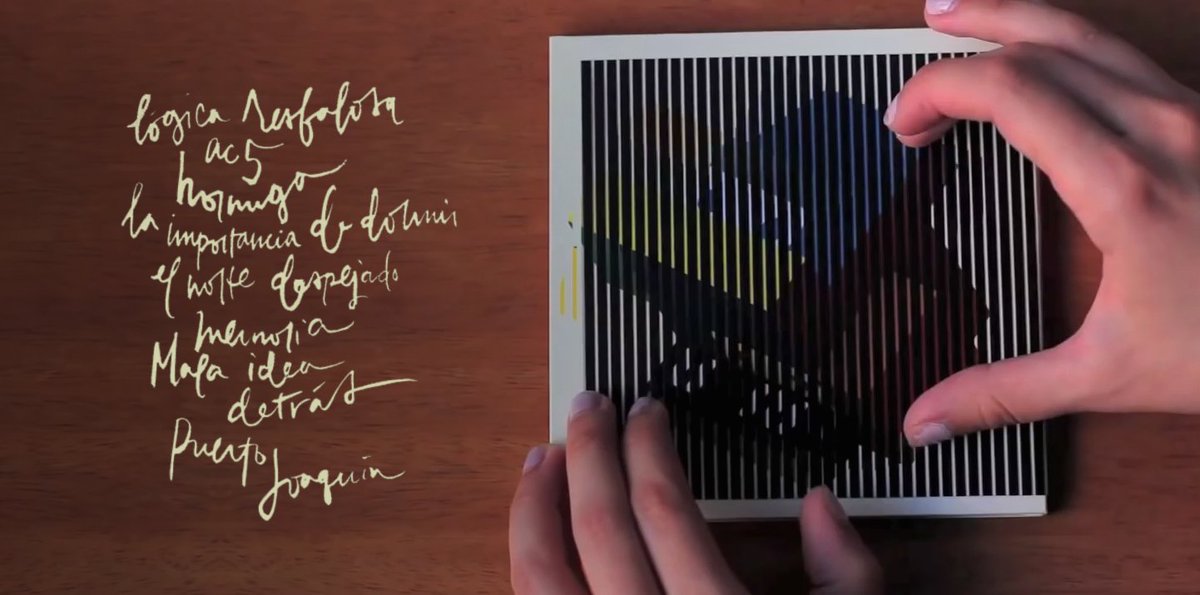 lógica resfalosa
ac5
hormiga
la importancia de dormir
el norte despejado
memoria
Mala idea
detrás
Puerto
Joaquín